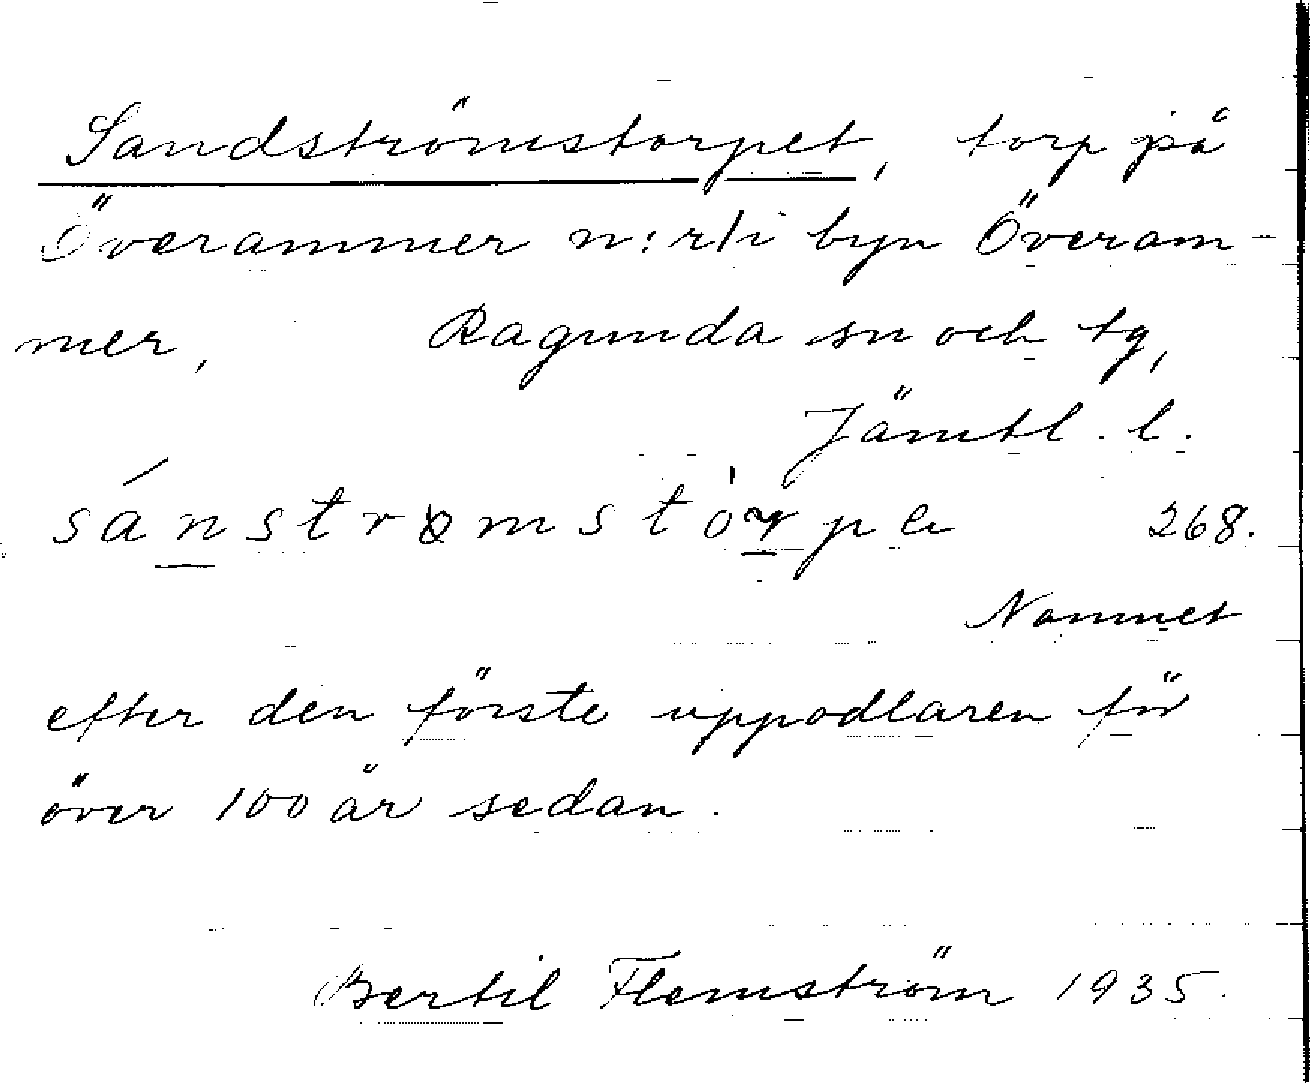 Sandströmstorpet, torp på
Överammer n:r 1 i byn Överam-
mer, Ragunda sn och tg,
Jämtl. l.
sánstrømstòrpa 268.
Namnet
efter den förste uppodlaren för
över 100 år sedan.
Bertil Flemström 1935.